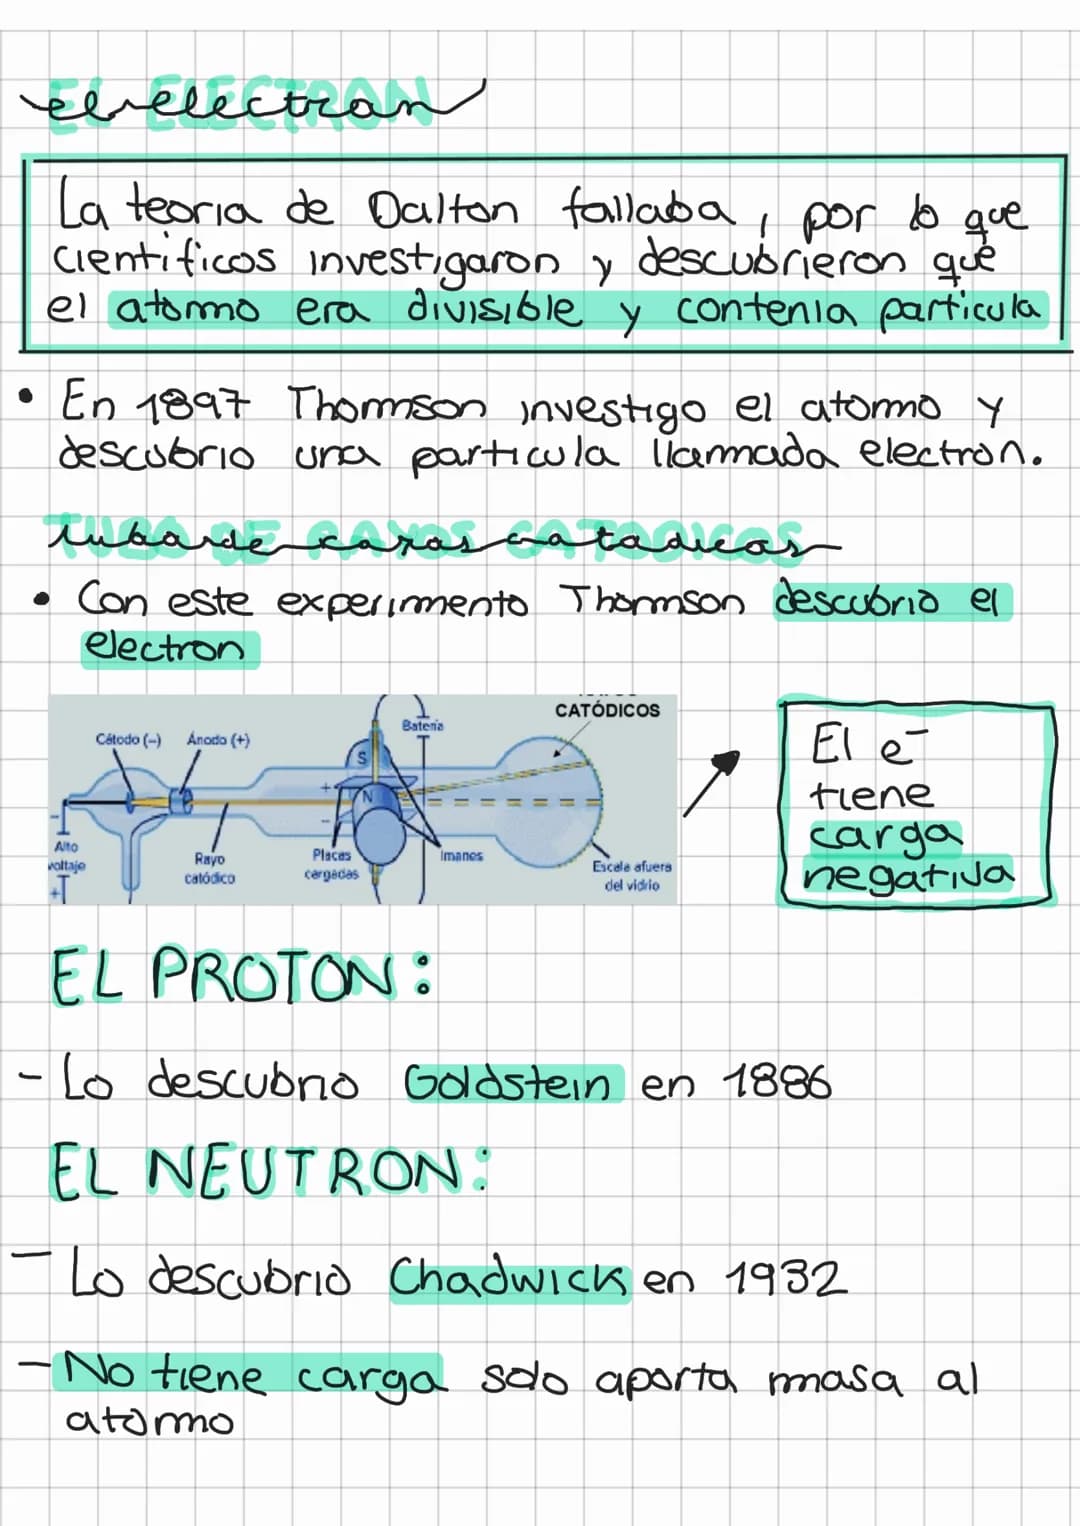 el electron
La teoria de Dalton fallaba, por lo que
cientificos investigaron y descubrieron que
el atomo era divisible y contenia particula
• En 1897 Thomson investigo el atomo y
descubrio una particula llamada electron.
tubo de rayos catodicos
• Con este experimento Thomson descubrio el
electron
CATÓDICOS
Batería
Cátodo (-) Ánodo (+)
S
+
N
-
-
Alto
voltaje
+
Rayo
catódico
Placas
cargadas
Imanes
Escala afuera
del vidrio
El e⁻
tiene
carga
negativa
EL PROTON:
- Lo descubrio Goldstein en 1886
EL NEUTRON:
- Lo descubrio Chadwick en 1932
- No tiene carga solo aporta masa al
atomo